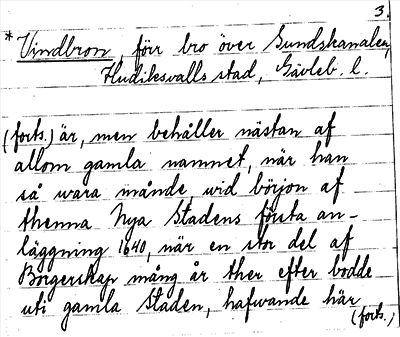 3.
* Vindbron, förr bro över Sundskanalen,
Hudiksvalls stad, Gävleb. l.
(forts.) är, men behåller nästan af
allom gamla namnet, när han
så wara månde wid börjon af
thenna Nya Stadens första an-
läggning 1640, när en stor del af
Borgerskap mång år ther efter bodde
uti gamla Staden, hafwande här
(forts.)